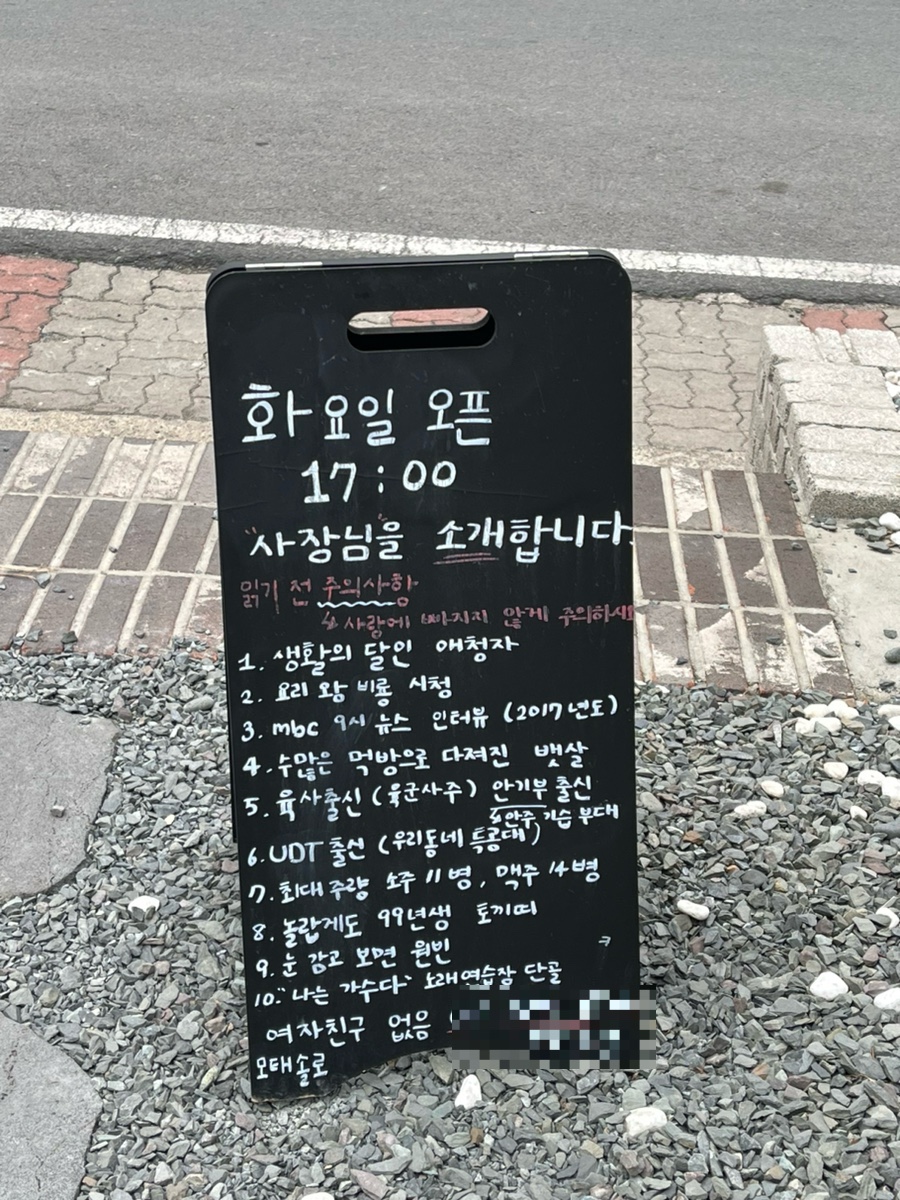 화요일 오픈
17:00
"사장님"을 소개합니다.
읽기 전 주의사항
↳ 사랑에 빠지지 않게 주의하세요
1. 생활의 달인 애청자
2. 요리 왕 비룡 시청
3. mbc 9시 뉴스 인터뷰 (2017년도)
4. 수많은 먹방으로 다져진 뱃살
5. 육사출신 (육군사주) 안기부 출신
↳안주 기습 부대
6. UDT 출신 (우리동네 특공대)
7. 최대 주량 소주 11병, 맥주 14병
8. 놀랍게도 99년생 토끼띠
9. 눈 감고 보면 원빈 ㅋ
10. "나는 가수다" 노래연습장 단골
여자친구 없음
모태솔로